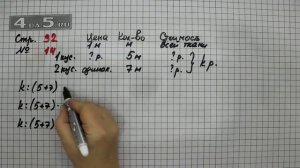 4DA5.RU
Стр. 92 Цена Кол-во Стоимость
№ 14 1 м м всей ткани
1 кус. ? р. 5 м ? р.
2 кус. одинак. 7 м ? р. } k р.
k : (5+7)
k : (5+7) ·
k : (5+7)